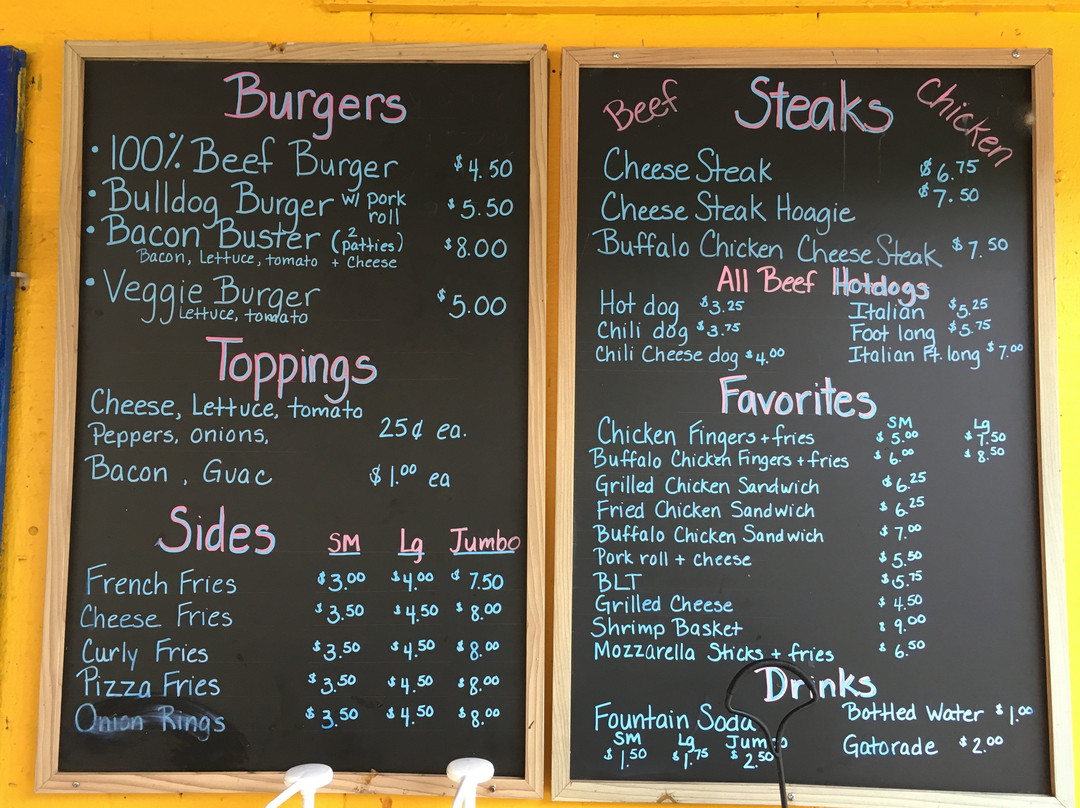 Burgers
• 100% Beef Burger $4.50
• Bulldog Burger w/ pork roll $5.50
• Bacon Buster (2 patties) $8.00
Bacon, Lettuce, tomato + Cheese
• Veggie Burger $5.00
Lettuce, tomato
Toppings
Cheese, Lettuce, tomato
Peppers, onions, 25¢ ea.
Bacon, Guac $1.00 ea
Sides SM Lg Jumbo
French Fries $3.00 $4.00 $7.50
Cheese Fries $3.50 $4.50 $8.00
Curly Fries $3.50 $4.50 $8.00
Pizza Fries $3.50 $4.50 $8.00
Onion Rings $3.50 $4.50 $8.00
Beef Steaks Chicken
Cheese Steak $6.75
Cheese Steak Hoagie $7.50
Buffalo Chicken Cheese Steak $7.50
All Beef Hotdogs
Hot dog $3.25 Italian $5.25
Chili dog $3.75 Foot long $5.75
Chili Cheese dog $4.00 Italian Ft. long $7.00
Favorites
SM Lg
Chicken Fingers + fries $5.00 $7.50
Buffalo Chicken Fingers + fries $6.00 $8.50
Grilled Chicken Sandwich $6.25
Fried Chicken Sandwich $6.25
Buffalo Chicken Sandwich $7.00
Pork roll + cheese $5.50
BLT $5.75
Grilled Cheese $4.50
Shrimp Basket $9.00
Mozzarella Sticks + fries $6.50
Drinks
Fountain Soda Bottled Water $1.00
SM Lg Jumbo Gatorade $2.00
$1.50 $1.75 $2.50